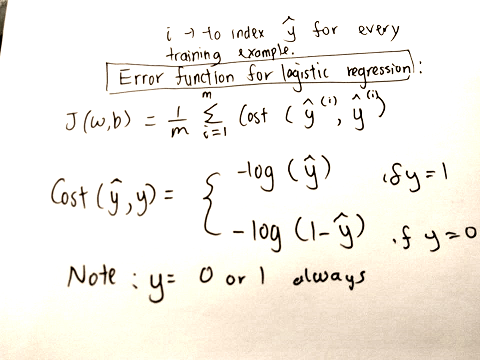 i → to index ŷ for every
training example.
Error function for logistic regression :
J(w,b) = 1/m Σ_{i=1}^{m} Cost (ŷ^(i), ŷ^(i))
Cost(ŷ,y) = { -log (ŷ) if y=1
-log (1-ŷ) if y=0
Note : y= 0 or 1 always